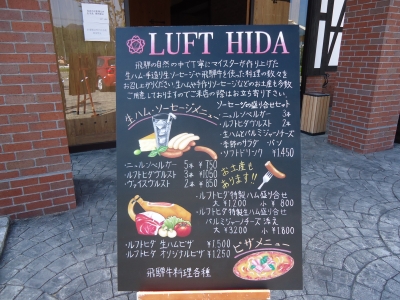 LUFT HIDA
飛騨の自然の中で丁寧にマイスターが作り上げた
生ハム・手造り生ソーセージや飛騨牛を使った料理の数々を
お召し上がりください。生ハムや手作りソーセージなどのお土産も多数
ご用意しておりますのでご来店の際はお立寄り下さい。
生ハム・ソーセージメニュー
・ニュルンベルガー 5本 ¥750
・ルフトヒダブルスト 3本 ¥1050
・ヴァイスブルスト 2本 ¥850
ソーセージの盛り合せセット
・ニュルンベルガー 3本
・ルフトヒダブルスト 2本
・生ハムとパルミジャーノチーズ
・季節のサラダ ・パン
・ソフトドリンク ¥1450
お土産も
あります!!
・ルフトヒダ特製ハム盛り合せ
大 ¥1200 小 ¥800
・ルフトヒダ特製生ハム盛り合せ
パルミジャーノチーズ添え
大 ¥3200 小 ¥1800
・ルフトヒダ 生ハムピザ ¥1500
・ルフトヒダ オリジナルピザ ¥1250
ピザメニュー
飛騨牛料理各種